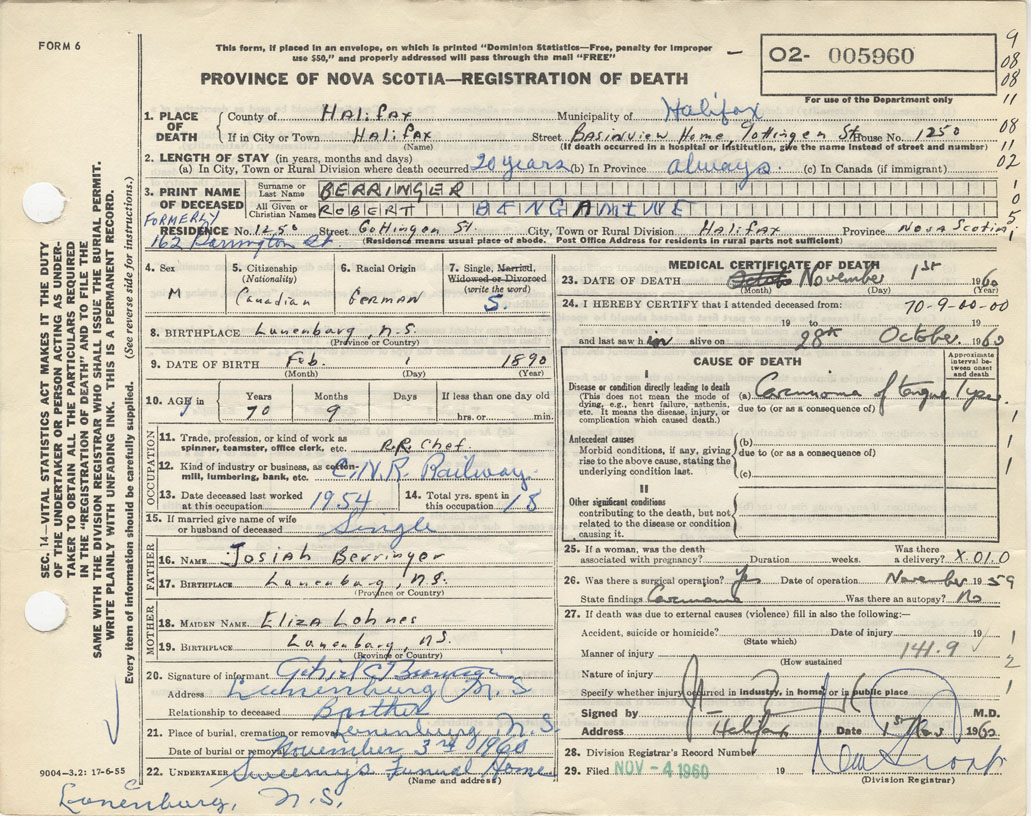 FORM 6
This form, if placed in an envelope, on which is printed "Dominion Statistics—Free, penalty for improper
use $50," and properly addressed will pass through the mail "FREE"
PROVINCE OF NOVA SCOTIA—REGISTRATION OF DEATH
02- 005960
For use of the Department only
9
08
08
11
08
11
02
1
0
5
1
1. PLACE OF DEATH County of Halifax Municipality of Halifax
If in City or Town Halifax Street Basinview Home, Gottingen St. House No. 1250
(Name) (If death occurred in a hospital or institution, give the name instead of street and number)
2. LENGTH OF STAY (in years, months and days)
(a) In City, Town or Rural Division where death occurred 20 years (b) In Province always. (c) In Canada (if immigrant)
3. PRINT NAME OF DECEASED Surname or Last Name BERRINGER
All Given or Christian Names ROBERT BENGAMINE
FORMERLY
RESIDENCE No. 1250 Street Gottingen St. City, Town or Rural Division Halifax Province Nova Scotia
162 Barrington St. (Residence means usual place of abode. Post Office Address for residents in rural parts not sufficient)
4. Sex M
5. Citizenship (Nationality) Canadian
6. Racial Origin German
7. Single, Married, Widowed or Divorced (write the word) S.
8. BIRTHPLACE Lunenburg, N.S.
(Province or Country)
9. DATE OF BIRTH Feb. 1 1890
(Month) (Day) (Year)
10. AGE in Years 70 Months 9 Days If less than one day old hrs. or min.
OCCUPATION
11. Trade, profession, or kind of work as spinner, teamster, office clerk, etc. R.R. Chef.
12. Kind of industry or business, as cotton-mill, lumbering, bank, etc. C.N.R. Railway.
13. Date deceased last worked at this occupation 1954 14. Total yrs. spent in this occupation 18
15. If married give name of wife or husband of deceased Single
FATHER
16. NAME Josiah Berringer
17. BIRTHPLACE Lunenburg, N.S.
(Province or Country)
MOTHER
18. MAIDEN NAME. Eliza Lohnes
19. BIRTHPLACE Lunenburg, N.S.
(Province or Country)
20. Signature of informant
Address Lunenburg N.S
Relationship to deceased Brother
21. Place of burial, cremation or removal Lunenburg N.S.
Date of burial or removal November 3rd 1960
22. UNDERTAKER Sweeny's Funeral Home
(Name and address)
9004-3.2: 17-6-55
Lunenburg, N.S.
SEC. 14—VITAL STATISTICS ACT MAKES IT THE DUTY
OF THE UNDERTAKER OR PERSON ACTING AS UNDER-
TAKER TO OBTAIN ALL THE PARTICULARS REQUIRED
IN THE "REGISTRATION OF DEATH" AND TO FILE THE
SAME WITH THE DIVISION REGISTRAR WHO SHALL ISSUE THE BURIAL PERMIT.
WRITE PLAINLY WITH UNFADING INK. THIS IS A PERMANENT RECORD.
Every item of information should be carefully supplied. (See reverse side for instructions.)
MEDICAL CERTIFICATE OF DEATH
23. DATE OF DEATH November 1st 1960
(Month) (Day) (Year)
24. I HEREBY CERTIFY that I attended deceased from: 70-9-00-00
19 to 19
and last saw him alive on 28th October. 1960
CAUSE OF DEATH
Approximate interval between onset and death
I
Disease or condition directly leading to death
(This does not mean the mode of dying, e.g., heart failure, asthenia, etc. It means the disease, injury, or complication which caused death.)
(a) Carcinoma of tongue 1 year.
due to (or as a consequence of)
Antecedent causes
Morbid conditions, if any, giving rise to the above cause, stating the underlying condition last.
(b)
due to (or as a consequence of)
(c)
II
Other significant conditions
contributing to the death, but not related to the disease or condition causing it.
1
1
1
25. If a woman, was the death associated with pregnancy? Duration weeks. Was there a delivery? X.01.0
26. Was there a surgical operation? Yes Date of operation November 1959
State findings Carcinoma Was there an autopsy? No
27. If death was due to external causes (violence) fill in also the following:—
Accident, suicide or homicide? Date of injury 19 1
(State which)
Manner of injury 141.9 2
(How sustained)
Nature of injury
Specify whether injury occurred in industry, in home, or in public place 1
Signed by M.D.
Address Halifax Date 1st Nov 1960
28. Division Registrar's Record Number
29. Filed NOV - 4 1960 19
(Division Registrar)